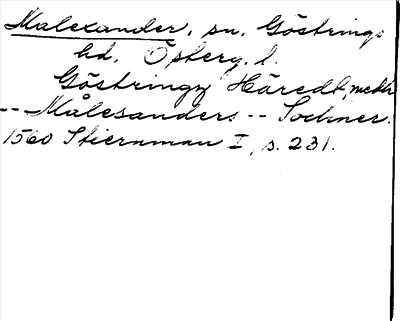 Malexander, sn, Göstrings
hd, Österg. l.
Göstringz Häredt, medh
-- Målesanders -- Sochner.
1560 Stiernman I, s. 231.